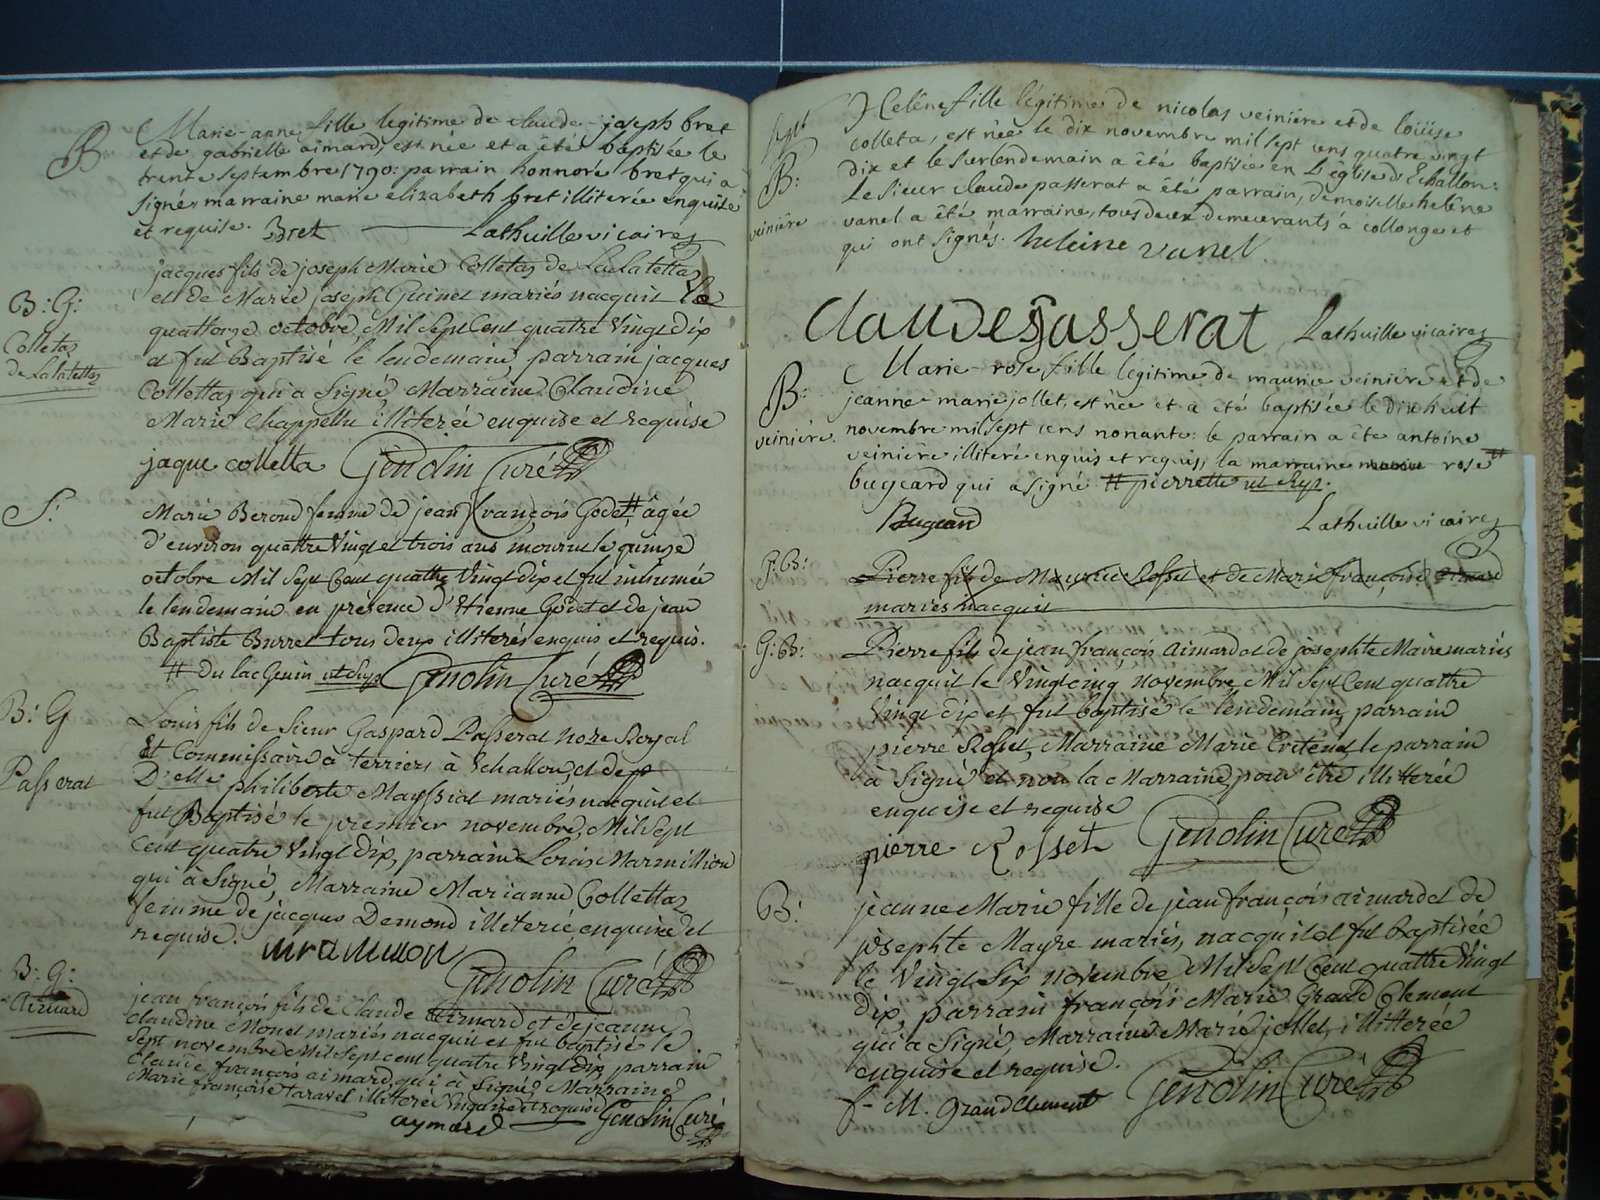 B
Marie-anne fille legitime de claude-joseph bret
et de gabrielle aimard, est née et a été baptisée le
trente septembre 1790. parrain honnoré bret qui a
signé marraine marie elizabeth bret illiterée enquise
et requise. Bret Lathuille vicaire
B: G:
Colletaz
de Lalatettaz
jacques fils de joseph Marie Colletaz de Lalatettaz
et de Marie joseph Guinet mariés nacquit le
quattorze octobre Mil Sept Cent quatre Vingt dix
et fut Baptisé le lendemain, parrain jacques
Collettaz qui a Signé, Marraine Claudine
Marie Chappellu illiterée enquise et requise
jaque colletta Genolin Curé
S:
Marie Berond femme de jean françois Godet # âgée
d'environ quattre Vingt et trois ans mourut le quinze
octobre Mil Sept Cent quattre Vingt dix et fut inhumée
le lendemain en présence d'Etienne Godet et de jean
Baptiste Burret tous deux illiterés enquis et requis.
# Du lac Genin ut Supr Genolin Curé
B: G
Passerat
Louis fils de Sieur Gaspard Passerat nore Royal
Et Commissaire à terriers à Echallon, et de
D:elle philiberte Mayssiat mariés nacquit et
fut Baptisé le premier novembre, Mil Sept
Cent quatre Vingt Dix, parrain Louis Marmillion
qui à Signé, Marraine Marianne Collettaz
femme de jacques Demond illiterée, enquise et
requise. Genolin Curé
B: G:
Aimard
jean françois fils de Claude Aimard et de jeanne
Claudine Monet mariés nacquit et fut baptisé le
Sept novembre Mil Sept cent quatre Vingt dix, parrain
Claude françois aimard, qui a Signé, Marraine
Marie françoise taravel illiterée Enquise et requise
aymard Genolin Curé
B:
veinière
Helêne fille légitime de nicolas veinière et de loüise
colleta, est née le dix novembre mil sept cens quatre vingt
dix et le surlendemain a été baptisée en L'église d'Echallon:
Le sieur claude passerat a été parrain, demoiselle helêne
vanel a été marraine, tous deux demeurants à collonge et
qui ont signés. heleine vanel.
claude Passerat Lathuille vicaire
B:
veinière
Marie-rose fille légitime de maurice veinière et de
jeanne-marie jollet, est née et a été baptisée le dix huit
novembre mil sept cens nonante: le parrain a été antoine
veinière illiteré enquis et requis, la marraine rose #
bugeard qui a signé # pierrette ut supr.
Bugeard Lathuille vicaire
G: B:
Pierre fils de Maurice Rosset et de Marie françoise
mariés nacquit
G: B:
Pierre fils de jean françois aimard et de josephte Maire mariés
nacquit le Vingt cinq novembre Mil Sept Cent quattre
Vingt dix et fut baptisé le lendemain, parrain
pierre Rosset, Marraine Marie Critenet le parrain
à Signé et non la Marraine pour être illitterée
enquise et requise
pierre Rosset Genolin Curé
B:
jeanne Marie fille de jean françois aimard et de
josephte Mayre mariés, nacquit et fut baptisée
le Vingt Six novembre Mil Sept Cent quattre Vingt
dix, parrain françois Marie Grand Clement
qui a Signé, Marraine Marie jollet, illitterée
enquise et requise.
f-M. grandclement Genolin Curé